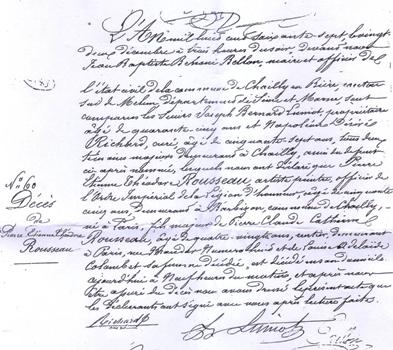 L'An mil huit cent soixante sept le vingt
deux décembre à trois heures du soir, devant nous
Jean Baptiste Bellon, maire et officier de
l'état civil de la commune de Chailly en Bière, canton
sud de Melun, département de Seine et Marne, sont
comparus les Sieurs Joseph Bernard Luniot, propriétaire
âgé de quarante cinq ans et Napoléon Désiré
Richard, âgé de cinquante sept ans, tous deux
témoins majeurs demeurant à Chailly, amis du défunt
ci après nommé, lesquels nous ont déclaré que Pierre
Etienne Théodore Rousseau, artiste peintre, officier de
l'Ordre Impérial de la Légion d'honneur, âgé de cinquante
cinq ans, demeurant à Barbizon, commune de Chailly,
né à Paris, fils majeur de Pierre Claude Catherine
Rousseau, âgé de quatre-vingt ans, rentier, demeurant
à Paris, rue et de Louise Adelaïde
Colombet sa femme décédée, est décédé en son domicile
aujourd'hui à neuf heures du matin, et après nous
être assuré du décès nous avons dressé le présent acte que
les déclarants ont signé avec nous après lecture faite.
N° 60
Décès
de
Pierre Etienne Théodore
Rousseau
Richard
Luniot